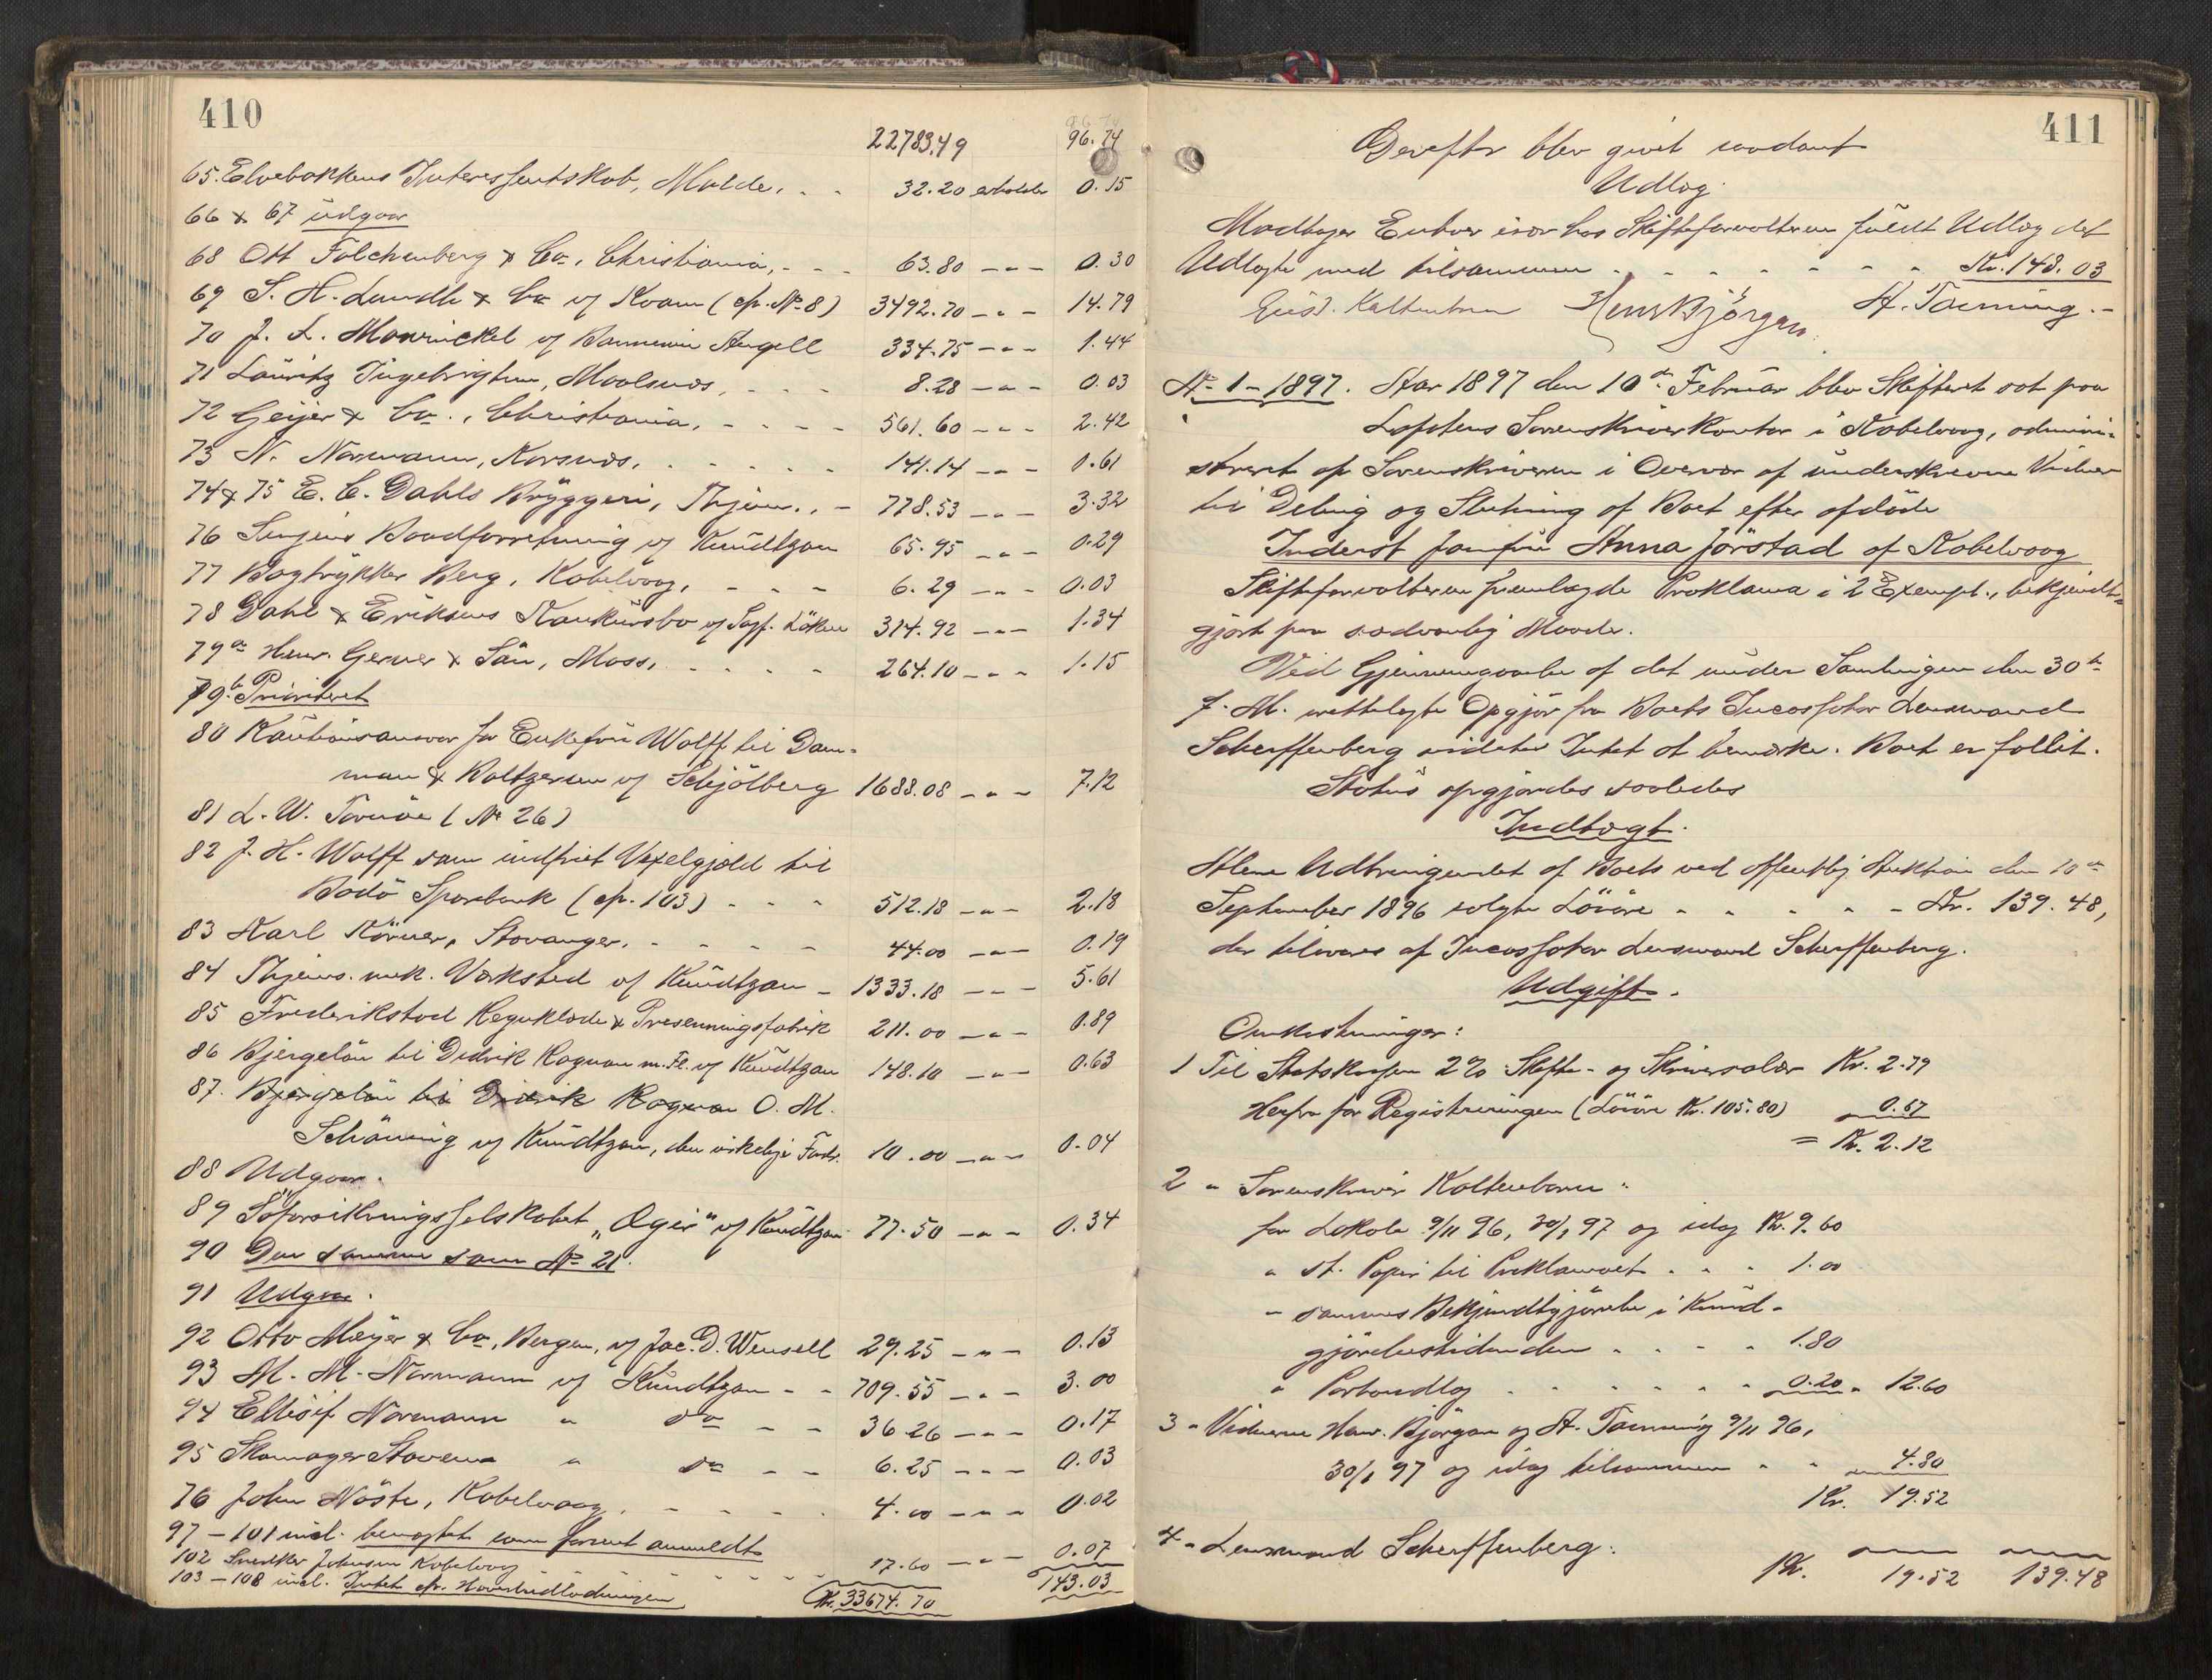 410
22783.49 96.74
65. Elvebakkens Interessentskab, Molde, . . 32.20 erholder 0.15
66 & 67 udgaar
68 Ott Falchenberg & Co., Christiania, - - - 63.80 - " - 0.30
69 S. H. Lundh & Co v/ Kvam (cfr. No 8) 3492.70 - " - 14.79
70 J. L. Mowinckel v/ Angell 334.75 - " - 1.44
71 Lauritz Ingebrigtsen, Moolsnæs, - - - 8.28 - " - 0.03
72 Geijer & Co., Christiania, - - - - 561.60 - " - 2.42
73 N. Normann, Korsnæs, - - - - - 141.14 - " - 0.61
74 & 75 E. C. Dahls Bryggeri, Thjem., - 778.53 - " - 3.32
76 Senjens Baadforretning v/ Kundtzon 65.95 - " - 0.29
77 Bogtrykker Berg, Kabelvaag, - - - 6.29 - " - 0.03
78 Dahl & Eriksens Konkursbo v/ Sagf. Löken 314.92 - " - 1.34
79a Henr. Gerner & Sön, Moss, - - - - 264.10 - " - 1.15
79b Prioritert
80 Kautionsansvar for Enkefru Wolff til Dam-
man & Roltgersen v/ Schjölberg 1688.08 - " - 7.12
81 L. W. Tornöe (No 26)
82 J. H. Wolff som indfriet Vexelgjæld til
Bodö Sparebank (cfr. 103) - - - 512.18 - " - 2.18
83 Karl Körner, Stavanger, - - - - - 44.00 - " - 0.19
84 Thjems. mek. Værksted v/ Kundtzon - 1333.18 - " - 5.61
85 Frederikstad Kegleklode & Presenningsfabrik 211.00 - " - 0.89
86 Bjergelön til Didrik Rognan m. Fl. v/ Kundtzon 148.10 - " - 0.63
87. Bjergelön til Didrik Rognan O. M.
Schöning v/ Kundtzon, den virkelige Fordr. 10.00 - " - 0.04
88 Udgaar.
89 Söforsikringsselskabet "Ægir" v/ Kundtzon 77.50 - " - 0.34
90 Den samme som No 21.
91 Udgaar.
92 Otto Meyer & Co., Bergen, v/ Jac. D. Wensell 29.25 - " - 0.13
93 M. M. Normann v/ Kundtzon - - 709.55 - " - 3.00
94 Ellisif Normann " do - - 36.26 - " - 0.17
95 Skomager Stavem " do - - 6.25 - " - 0.03
76 John Nöste, Kabelvaag, - - - - 4.00 - " - 0.02
97 - 101 incl. benegtet som forsent anmeldt
102 Snedker Johnsen Kabelvaag - - - - - - 17.60 - " - 0.07
103 - 108 incl. Intet cfr. Hovedudlodningen Kr. 33674.70 143.03
411
Derefter blev givet saadant
Udlæg.
Modtager Enhver især hos Skifteforvalteren fuldt Udlæg det
Udlagte med tilsammen - - - - - - - Kr. 143.03
Eüst. Kaltenborn Henr Bjørgan A. Tanning.-
No 1 - 1897. Aar 1897 den 10de Februar blev Skifteret sat paa
Lofotens Sorenskriverkontor i Kabelvaag, admini-
streret af Sorenskriveren i Overvær af underskrevne Vidner
til Deling og Slutning af Boet efter afdöde
Inderst Jomfru Anna Jörstad af Kabelvaag
Skifteforvalteren fremlagde Proklama i 2 Exempl., bekjendt-
gjort paa sædvanlig Maade.
Ved Gjennemgaaelse af det under Samlingen den 30te
f. M. fremlagte Opgjör fra Boets Incassator Lensmand
Scherffenberg vidstes Intet at bemærke. Boet er fallit.
Status opgjördes saaledes
Indtægt.
Alene Udbringendet af Boets ved offentlig Auktion den 10de
September 1896 solgte Lösöre - - - - - Kr. 139.48,
der tilvares af Incassator Lensmand Scherffenberg.
Udgift.
Omkostninger:
1 Til Statskassen 2 % Skifte- og Skriversalær Kr. 2.79
Herfra for Registreringen (Lösöre Kr. 105.80) 0.67
= Kr. 2.12
2 " Sorenskriver Kaltenborn:
for Lokale 9/11 96, 30/1 97 og idag Kr. 9.60
" st. Papir til Proklamaet - - - 1.00
" sammes Bekjendtgjörelse i Kund-
gjörelsestidenden - - - - 1.80
" Portoudlæg - - - - - - 0.20 " 12.60
3 " Vidnerne Henr. Bjørgan og A. Tanning 9/11 96,
30/1 97 og idag tilsammen " " 4.80
Kr. 19.52
4 " Lensmand Scherffenberg:
Kr. 19.52 139.48